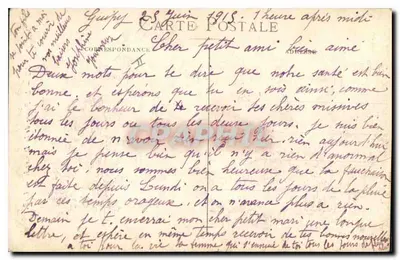 Guipy, 23 Juin 1915. 1 heure après midi
CARTE POSTALE
CORRESPONDANCE
Cher petit ami bien aimé
II
Deux mots pour te dire que notre santé est bien
bonne, et espérons que tu en sois ainsi, comme
j'ai le bonheur de te recevoir tes chères missives
tous les jours ou tous les deux jours, je suis bien
étonnée de n'avoir rien eu hier, rien aujourd'hui
mais je pense bien qu'il n'y a rien d'anormal
chez toi, nous sommes bien heureuse que la fauchaison
est faite depuis Lundi on a tous les jours de la pluie
par ces temps orageux, et on n'avance plus a rien.
Demain je t'enverrai mon cher petit mari une longue
lettre, et espère en même temps recevoir de tes bonnes nouvelles
a toi pour la vie ta femme qui s'ennuie de toi tous les jours
pour toi
de meilleurs
baisers